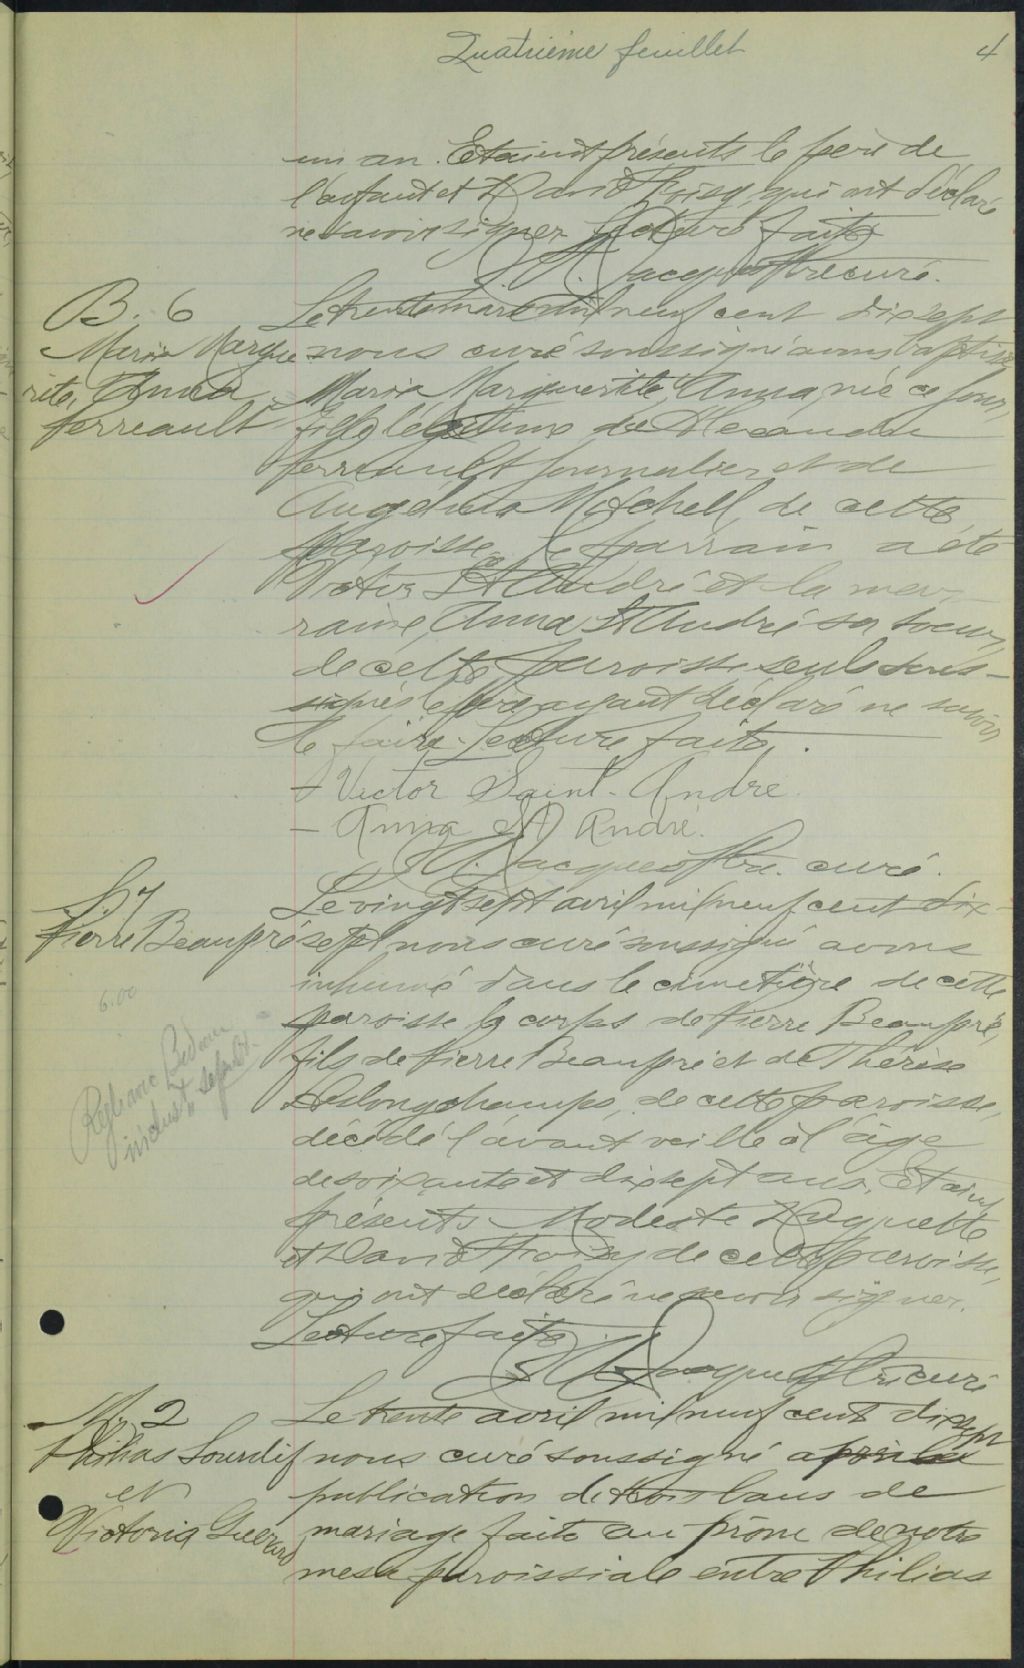 Quatrième feuillet
4
un an. Etaient présents le père de
l'enfant et David Froisy, qui ont déclaré
ne savoir signer. Lecture faite
Jacques Ptre curé.
B. 6
Maria Margue
rite, Anna
Perreault
Le trente mars mil neuf cent dix sept
nous curé soussigné avons baptisé
Maria Marguerite, Anna, née ce jour,
fille légitime de Alexandre
Perreault journalier et de
Angélina Mitchell, de cette
paroisse. Le parrain a été
Victor St André et la mar-
raine, Anna St André sa soeur,
de cette paroisse seuls sous-
signés le père ayant déclaré ne savoir
le faire. Lecture faite.
- Victor Saint-André.
- Anna St André.
Jacques Ptre. curé.
S. 7
Pierre Beaupré
Le vingt sept avril mil neuf cent dix-
sept nous curé soussigné avons
inhumé dans le cimetière de cette
paroisse le corps de Pierre Beaupré,
fils de Pierre Beaupré et de Thérèse
Deslongchamps, de cette paroisse,
décédé l'avant veille à l'âge
de soixante et dix sept ans. Etaient
présents Modeste Paquette
et David Froisy de cette paroisse,
qui ont déclaré ne savoir signer.
Lecture faite
Jacques Ptre curé
6.00
M. 2
Philias Sourdif
et
Victoria Guérard
Le trente avril mil neuf cent dix sept
nous curé soussigné après la
publication de trois bans de
mariage faite au prône de notre
messe paroissiale entre Philias